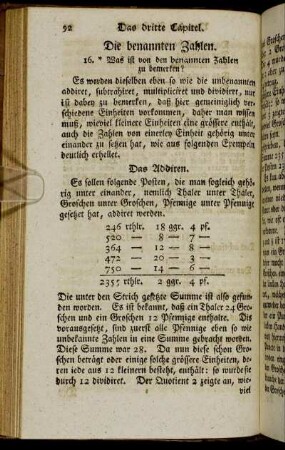 92 Das dritte Capitel.
Die benannten Zahlen.
16. * Was ist von den benannten Zahlen
zu bemerken?
Es werden dieselben eben so wie die unbenannten
addiret, subtrahiret, multipliciret und dividirt, nur
ist dabey zu bemerken, daß hier gemeiniglich ver-
schiedene Einheiten vorkommen, daher man wissen
muß, wieviel kleinere Einheiten eine grössere enthält,
auch die Zahlen von einerley Einheit gehörig unter
einander zu setzen hat, wie aus folgenden Exempeln
deutlich erhellet.
Das Addiren.
Es sollen folgende Posten, die man sogleich gehö-
rig unter einander, nemlich Thaler unter Thaler,
Groschen unter Groschen, Pfennige unter Pfennige
gesetzet hat, addiret werden.
246 rthlr. 18 ggr. 4 pf.
520 — 8 — 7 —
364 — 12 — 8 —
472 — 20 — 3 —
750 — 14 — 6 —
2355 rthlr. 2 ggr. 4 pf.
Die unter den Strich gesetzte Summe ist also gefun-
den worden. Es ist bekannt, daß ein Thaler 24 Gro-
schen und ein Groschen 12 Pfennige enthalte. Dis
vorausgesetzt, sind zuerst alle Pfennige eben so wie
unbekannte Zahlen in eine Summe gebracht worden.
Diese Summe war 28. Da nun diese schon Gro-
schen beträgt oder einige solche grössere Einheiten, de-
ren iede aus 12 kleinern besteht, enthält: so wurde sie
durch 12 dividiret. Der Quotient 2 zeigte an, wie-
viel